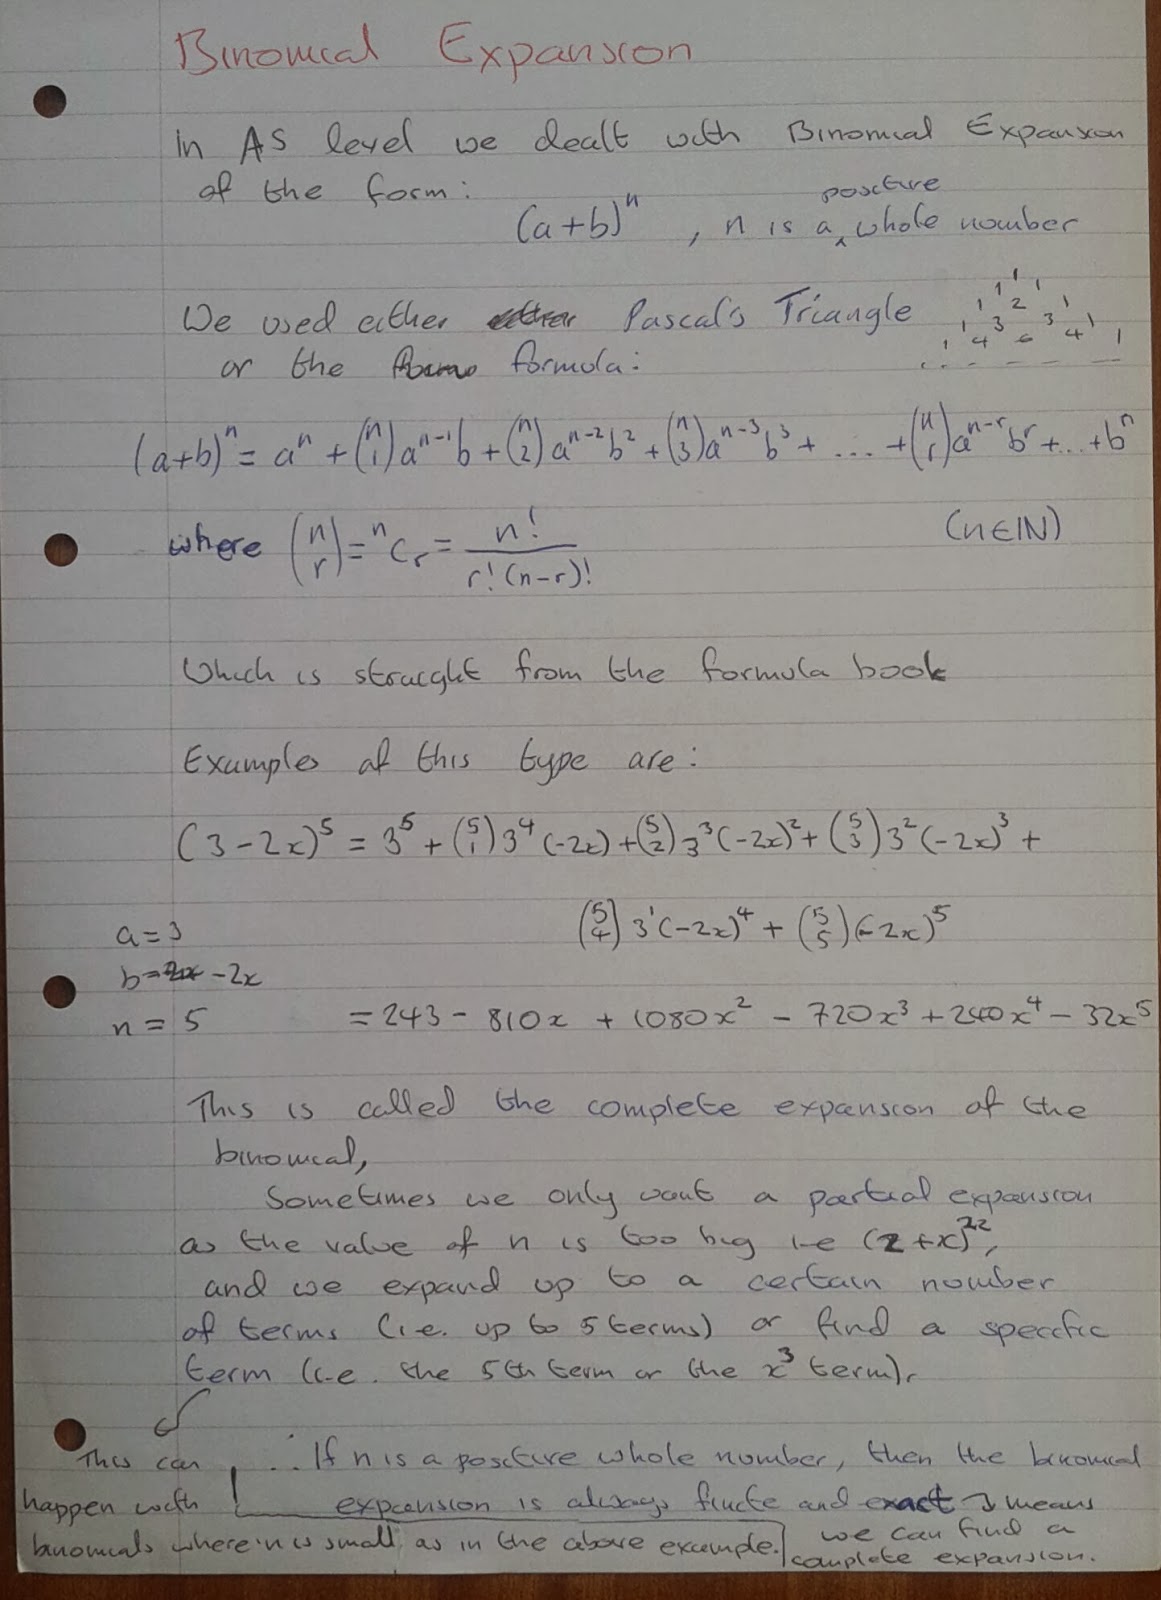 Binomial Expansion
In AS level we dealt with Binomial Expansion
of the form:
positive
(a+b)^n , n is a ‸ whole number
We used either Pascal's Triangle
or the formula:
1
1 1
1 2 1
1 3 3 1
1 4 6 4 1
. - - - - -
(a+b)^n = a^n + (n 1) a^(n-1) b + (n 2) a^(n-2) b^2 + (n 3) a^(n-3) b^3 + ... + (n r) a^(n-r) b^r + ... + b^n
where (n r) = ^nC_r = n! / r!(n-r)!
(n∈ℕ)
Which is straight from the formula book
Examples of this type are:
(3-2x)^5 = 3^5 + (5 1) 3^4 (-2x) + (5 2) 3^3 (-2x)^2 + (5 3) 3^2 (-2x)^3 +
(5 4) 3^1 (-2x)^4 + (5 5) (-2x)^5
a = 3
b = -2x
n = 5
= 243 - 810x + 1080x^2 - 720x^3 + 240x^4 - 32x^5
This is called the complete expansion of the
binomial,
Sometimes we only want a partial expansion
as the value of n is too big i-e (2+x)^22,
and we expand up to a certain number
of terms (i.e. up to 5 terms) or find a specific
term (i-e. the 5th term or the x^3 term).
This can
happen with
binomials where n is small as in the above example.
∴ If n is a positive whole number, then the binomial
expansion is always finite and exact → means
we can find a
complete expansion.